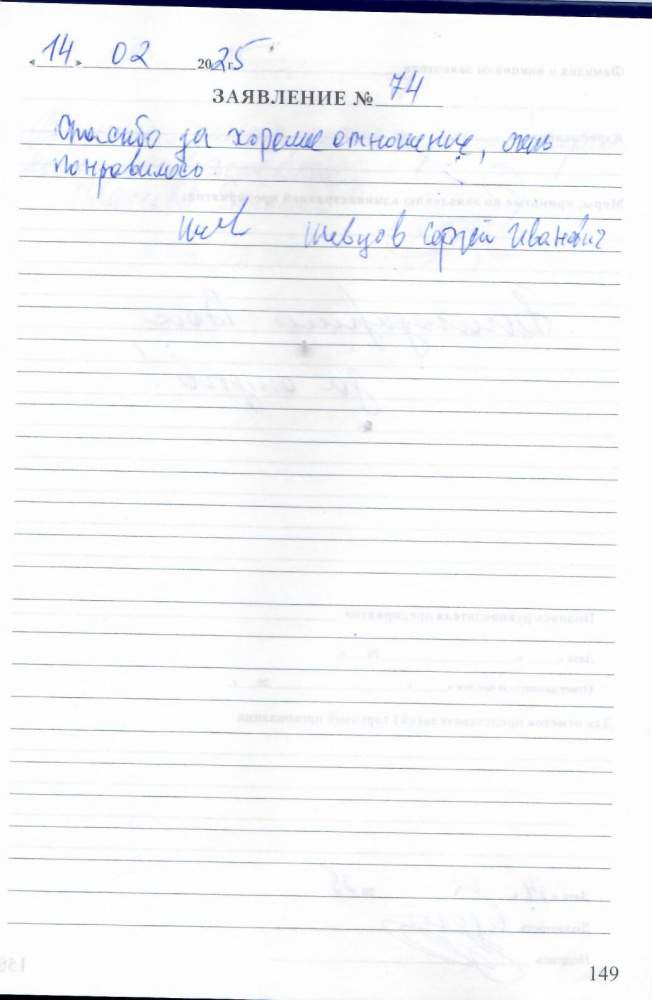 « 14 » 02 2025 г.
ЗАЯВЛЕНИЕ № 74
Спасибо за хорошее отношение, очень
понравилось.
Шевцов Сергей Иванович
149